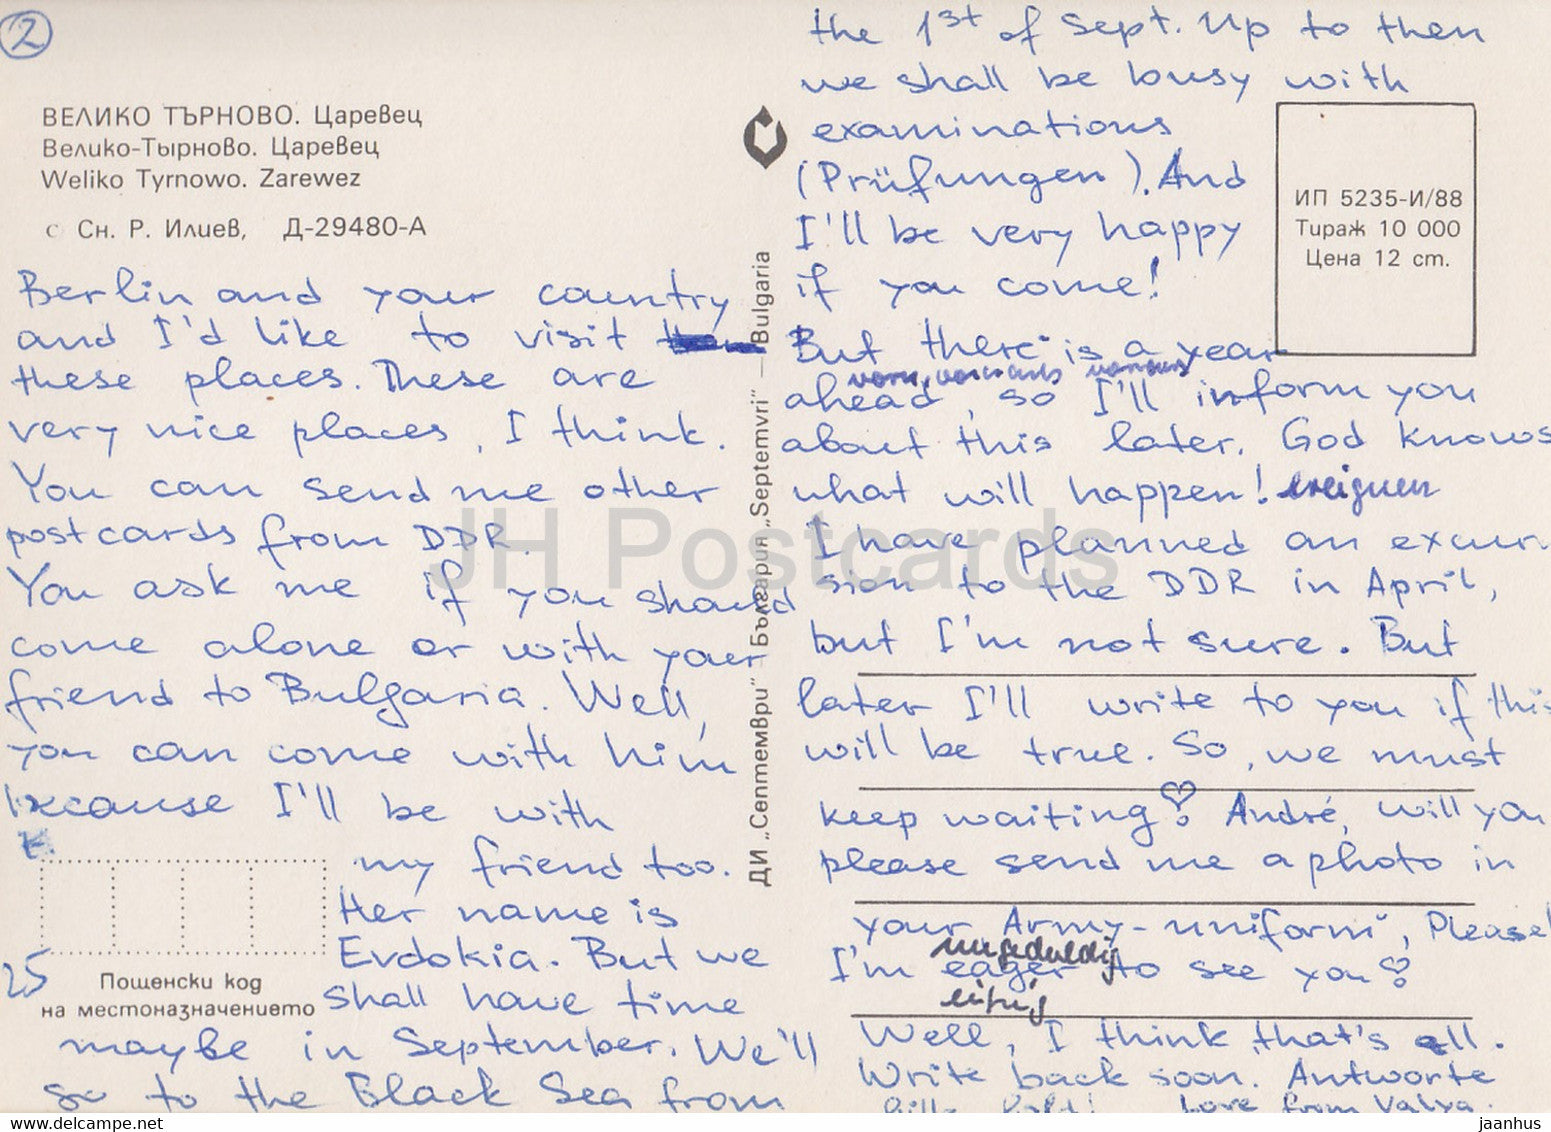 2
ВЕЛИКО ТЪРНОВО. Царевец
Велико-Тырново. Царевец
Weliko Tyrnowo. Zarewez
с Сн. Р. Илиев, Д-29480-А
Berlin and your country
and I'd like to visit
these places. These are
very nice places, I think.
You can send me other
postcards from DDR.
You ask me if you should
come alone or with your
friend to Bulgaria. Well,
you can come with him
because I'll be with
my friend too.
Her name is
Evdokia. But we
shall have time
maybe in September. We'll
go to the Black Sea from
25
Пощенски код
на местоназначението
ДИ „Септември“ България „Septemvri“ — Bulgaria
the 1st of Sept. Up to then
we shall be busy with
examinations
(Prüfungen). And
I'll be very happy
if you come!
But there is a year
ahead, so I'll inform you
about this later. God knows
what will happen! ereignen
I have planned an excur-
sion to the DDR in April,
but I'm not sure. But
later I'll write to you if this
will be true. So, we must
keep waiting! André, will you
please send me a photo in
your Army-uniform, Please!
ungeduldig
I'm eager to see you!
eifrig
Well, I think that's all.
Write back soon. Antworte
Bitte bald! Love from Valya.
ИП 5235-И/88
Тираж 10 000
Цена 12 ст.
JH Postcards
www.delcampe.net
jaanhus